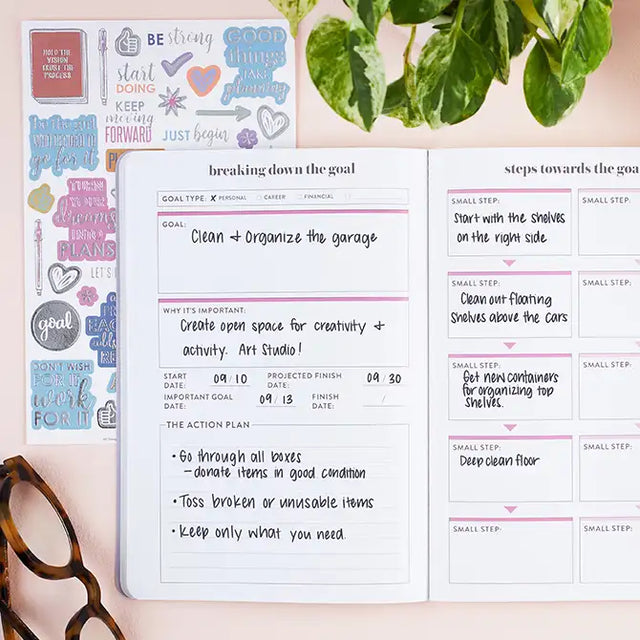 HOLD THE
VISION
TRUST THE
PROCESS
BE strong
GOOD
things
TAKE
planning
start
DOING
KEEP
moving
FORWARD
JUST begin
go for it
TURN
YOUR
dreams
INTO
PLANS
LET'S
goal
DON'T WISH
FOR IT
WORK
FOR IT
breaking down the goal
GOAL TYPE: X PERSONAL CAREER FINANCIAL
GOAL:
Clean + Organize the garage
WHY IT'S IMPORTANT:
Create open space for creativity +
activity. Art Studio!
START DATE: 09/10 PROJECTED FINISH DATE: 09/30
IMPORTANT GOAL DATE: 09/13 FINISH DATE: /
THE ACTION PLAN
• Go through all boxes
- donate items in good condition
• Toss broken or unusable items
• Keep only what you need.
steps towards the goa
SMALL STEP: SMALL STEP:
Start with the shelves
on the right side
SMALL STEP: SMALL STEP:
Clean out floating
shelves above the cars
SMALL STEP: SMALL STEP:
Get new containers
for organizing top
shelves.
SMALL STEP: SMALL STEP:
Deep clean floor
SMALL STEP: SMALL STEP: